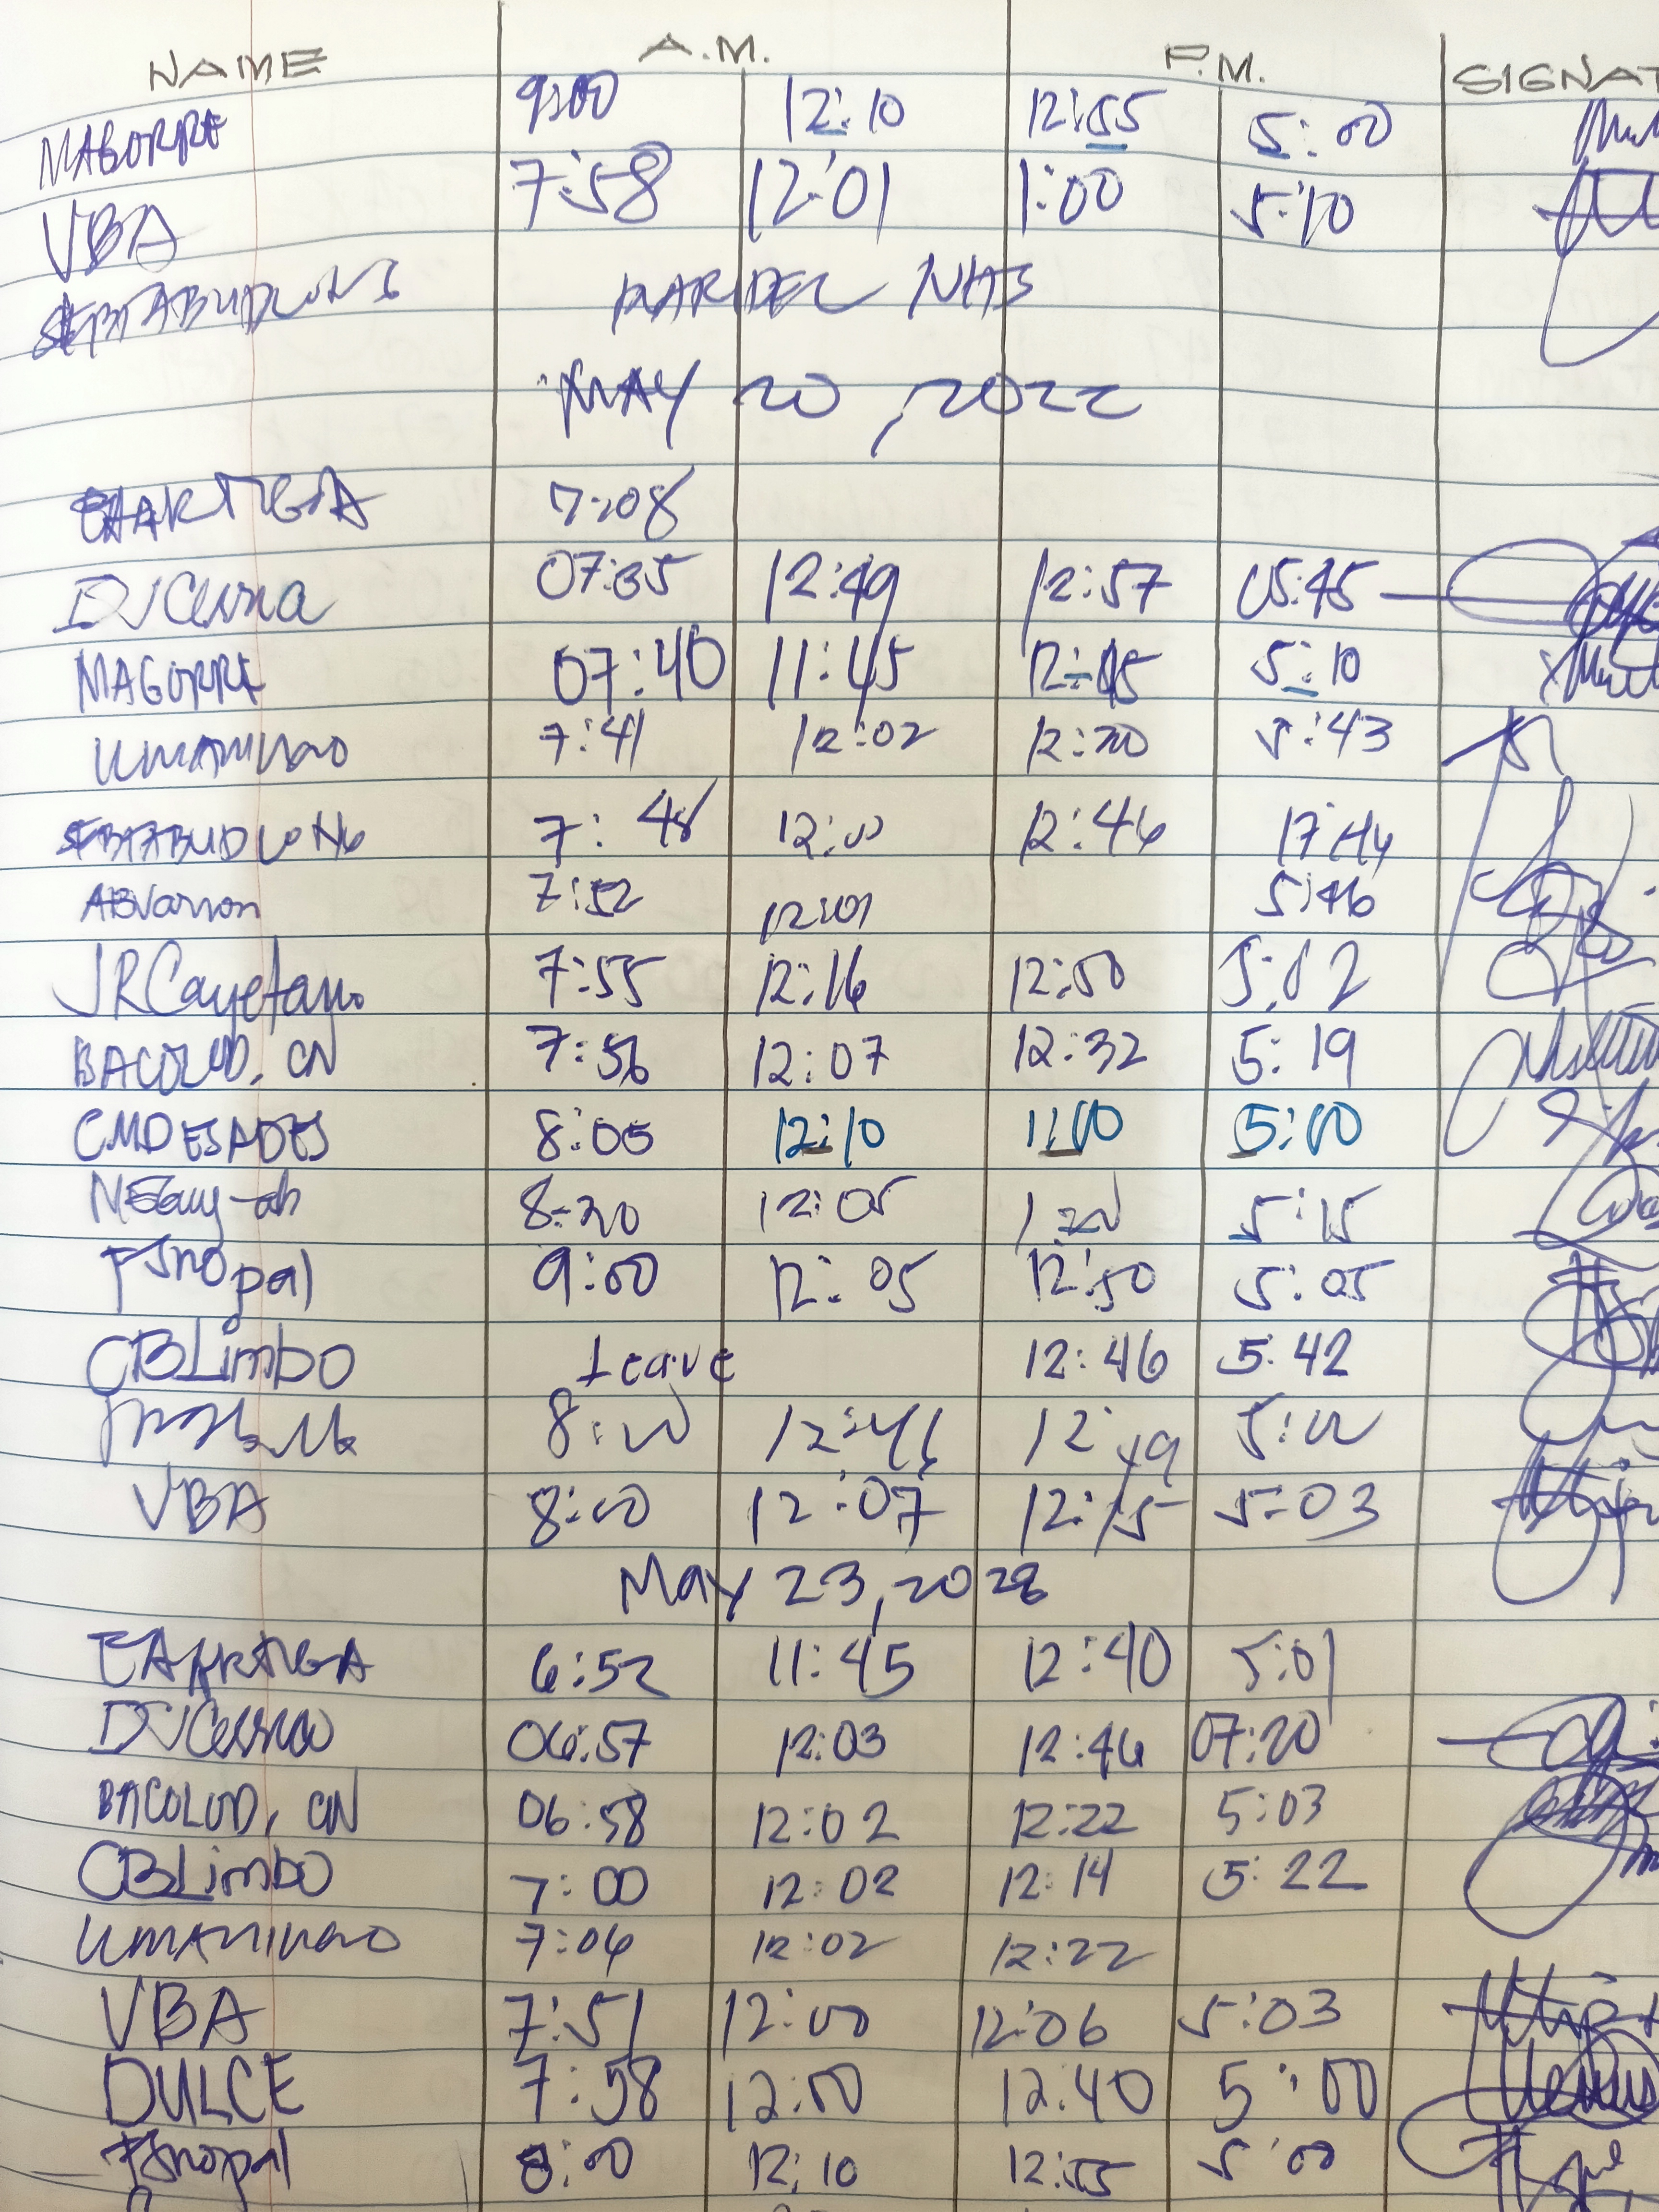 NAME A.M. P.M. SIGNAT
MAGORRE 9:00 12:10 12:55 5:00
VBA 7:58 12:01 1:00 5:10
NHS
MAY 20, 2022
7:08
DVCerna 07:35 12:49 12:57 05:45
MAGORRE 07:40 11:45 5:10
7:41 12:02 12:20 5:43
7:48 12:00 12:46 17:44
7:52 12:01 5:46
JRCayetano 7:55 12:16 12:50 5:02
BACOLOD, CN 7:56 12:07 12:32 5:19
CMDESADES 8:05 12:10 1:00 5:00
8:20 12:05 5:15
FJnopal 9:00 12:05 12:50 5:05
CBLimbo Leave 12:46 5:42
8:00 12:46 12:49 5:00
VBA 8:00 12:07 12:15 5:03
May 23, 2022
EAARTEGA 6:52 11:45 12:40 5:01
DVCerna 06:57 12:03 12:46 07:20
BACOLOD, CN 06:58 12:02 12:22 5:03
CBLimbo 7:00 12:02 12:14 5:22
7:04 12:02 12:22
VBA 7:51 12:00 12:06 5:03
DULCE 7:58 12:00 12:40 5:00
FJnopal 8:00 12:10 12:55 5:00